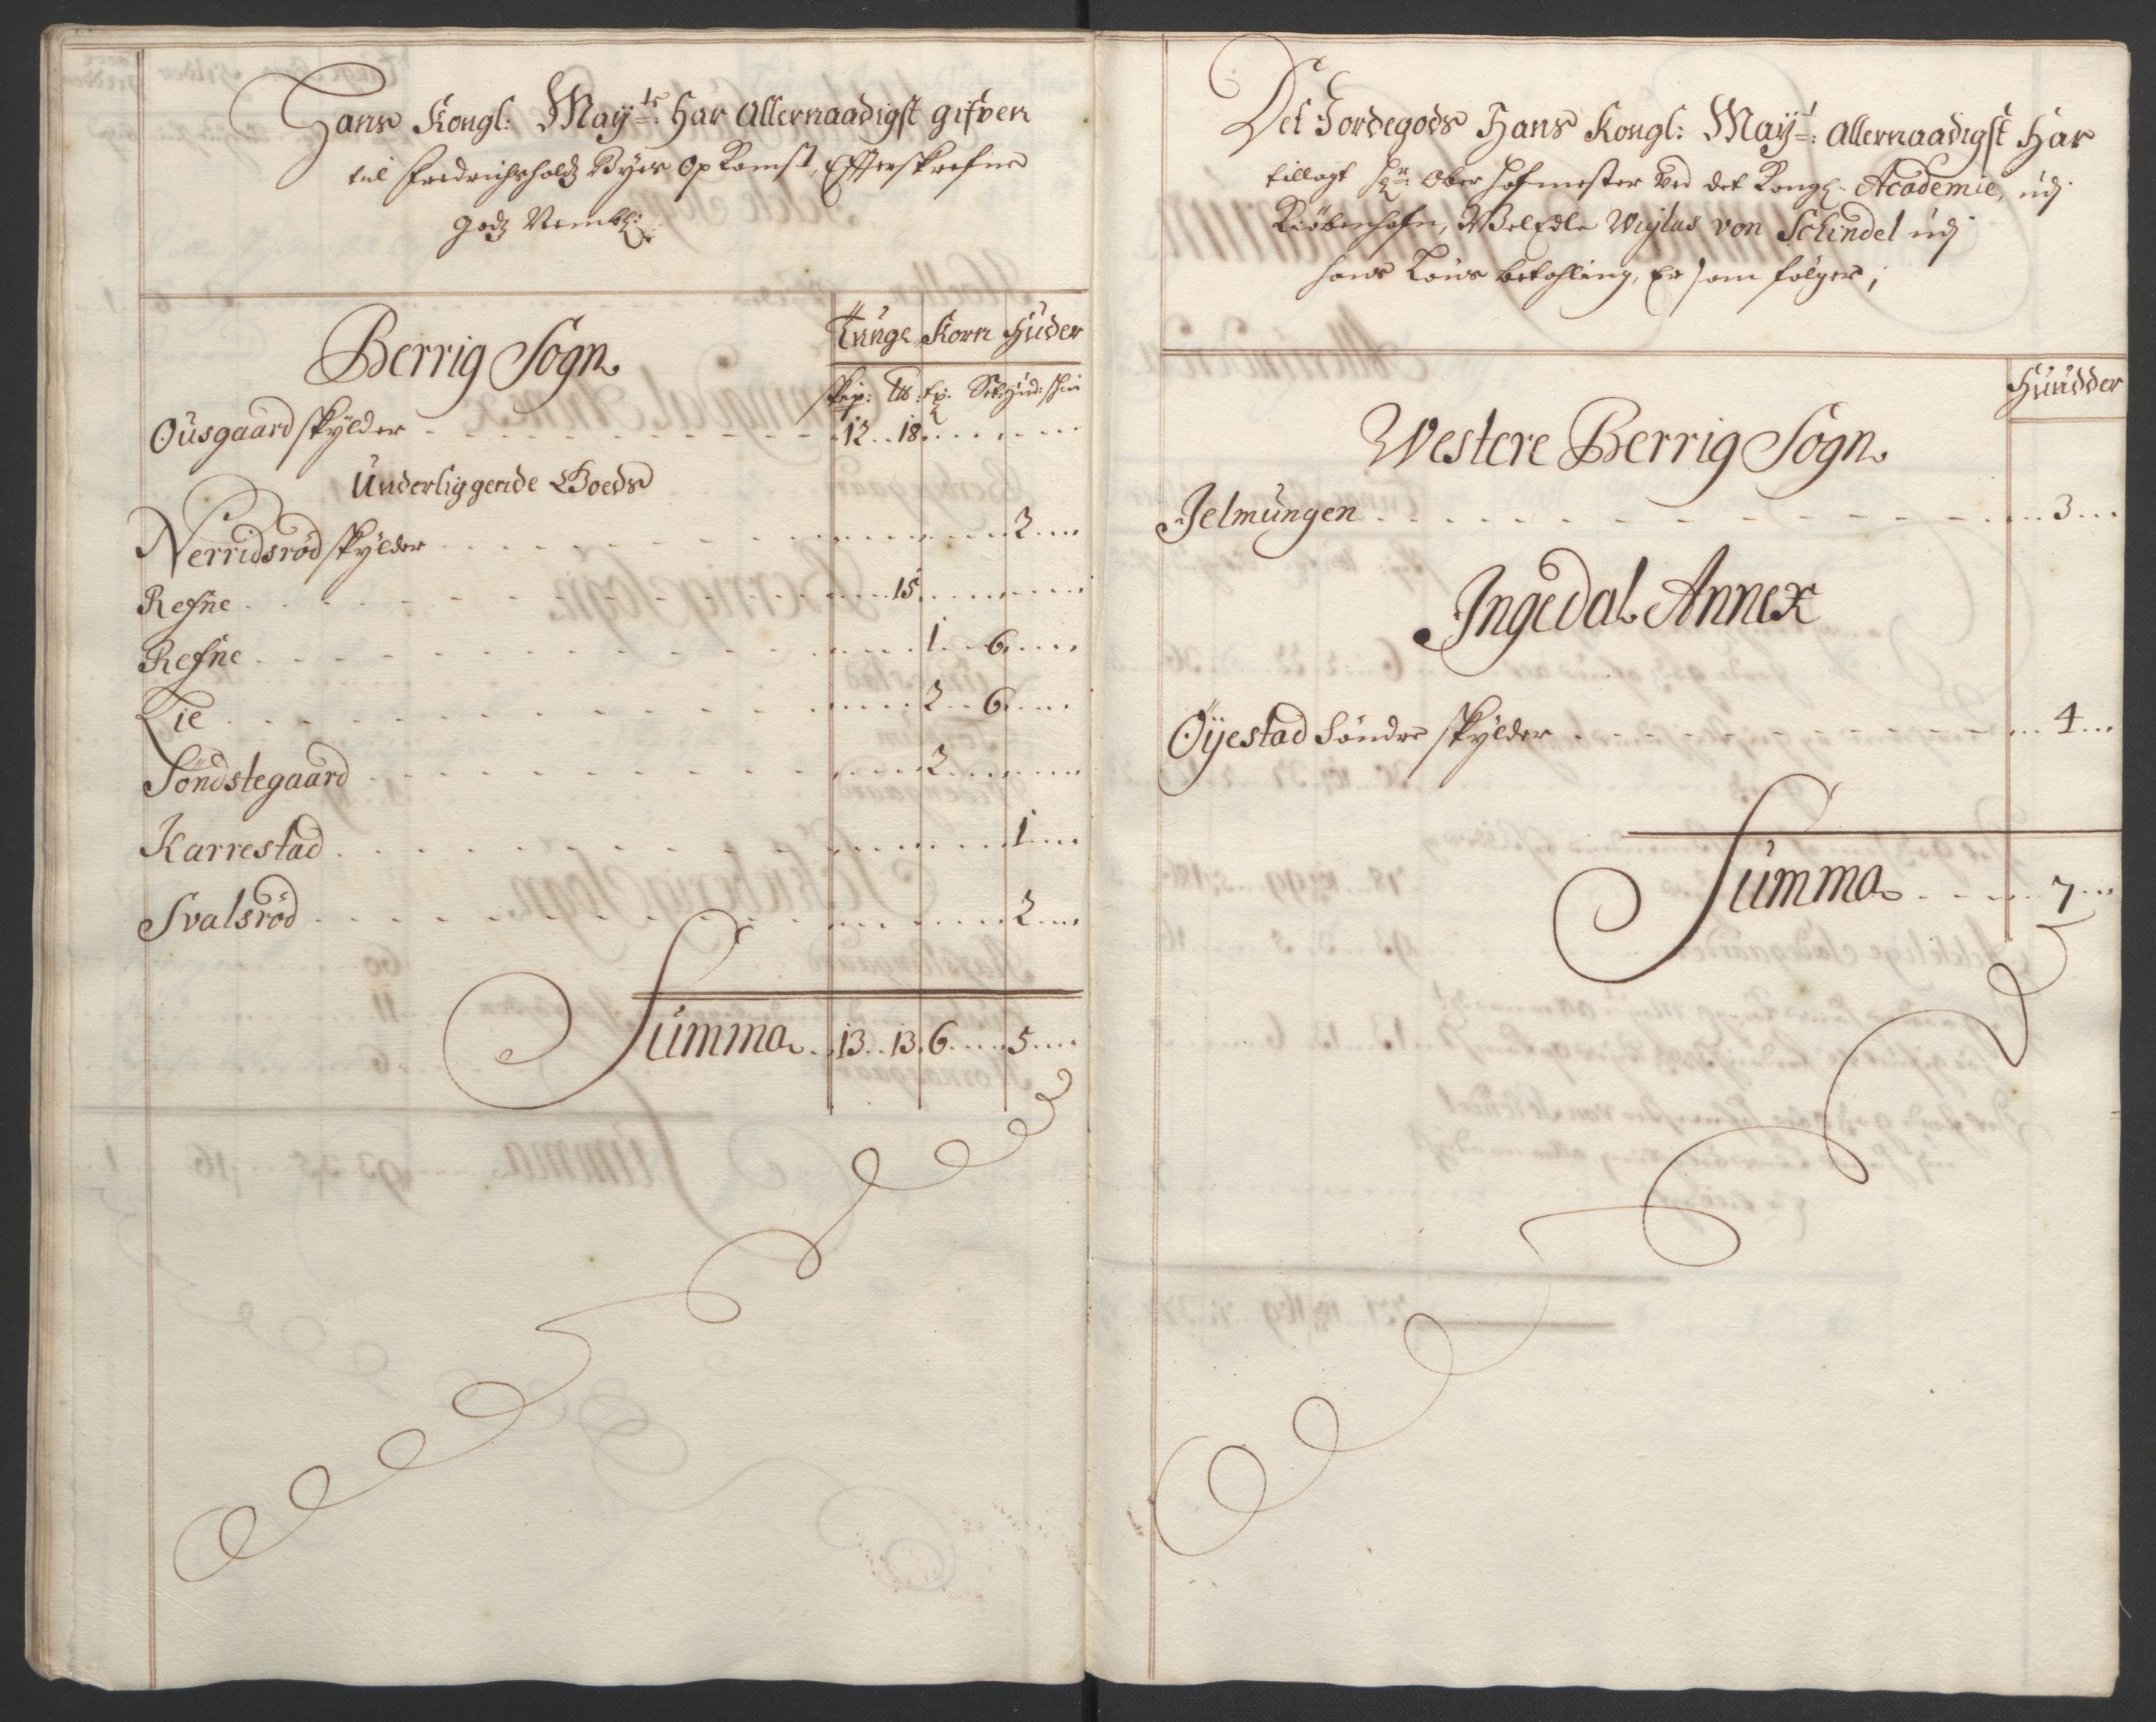 Hans Kongl: May:ts: Har Allernaadigst gifven
til Fredrichshalds Byes Opkomst, Effterskrefne
Godz Nembl:
Tünge Korn Hüder
Berrig Sogn
Skp: Lb: Tp. Set: Hud: Skin
Oüsgaard skÿlder 12 18
Underliggende Goeds
Nerridsrød skÿlder 2
Refne 15
Refne 1 6
Lie 2 6
Söndstegaard 2
Karrestad 1
Svalsröd 2
Summa 13 13 6 5
Det Jordegods Hans Kongl: May:t: Allernaadigst Har
tillagt Hr: Ober Hofmester Ved det Kongl: Academie, udj
Kiøbenhafn, WelEdle Wiglas von Schindel udj
hans Löns betahling, Er som følger;
Hüüdder
Westere Berrig Sogn
Jelmüngen 3
Ingedal Annex
Öÿestad Söndre skÿlder 4
Summa 7